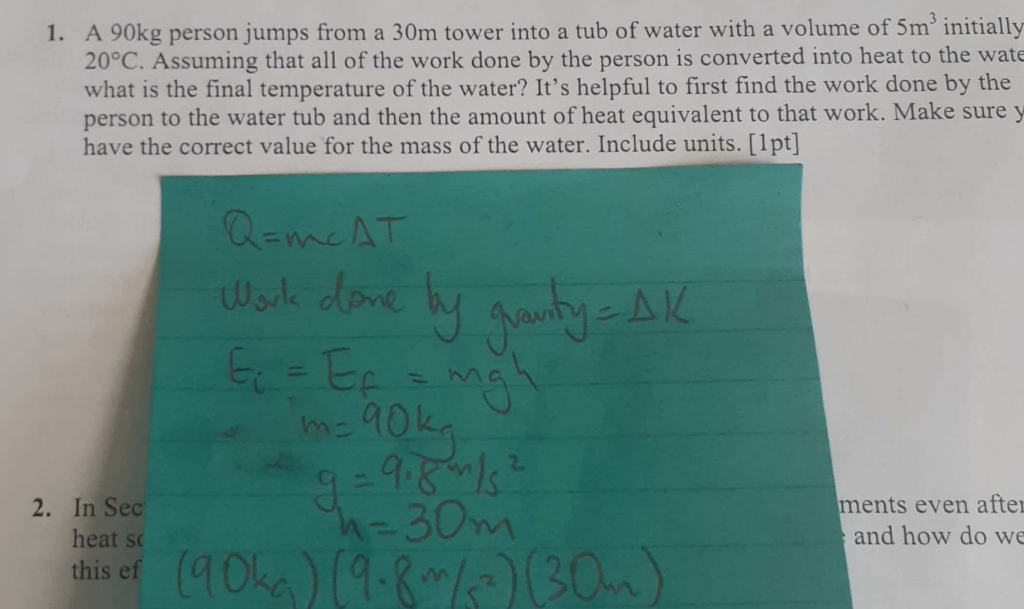 1. A 90kg person jumps from a 30m tower into a tub of water with a volume of 5m³ initially
20°C. Assuming that all of the work done by the person is converted into heat to the wate
what is the final temperature of the water? It's helpful to first find the work done by the
person to the water tub and then the amount of heat equivalent to that work. Make sure y
have the correct value for the mass of the water. Include units. [1pt]
Q=mcΔT
Work done by gravity = ΔK
Ei = Ef = mgh
m=90kg
g=9.8m/s²
h=30m
(90kg)(9.8m/s²)(30m)
2. In Sec ments even after
heat so and how do we
this ef